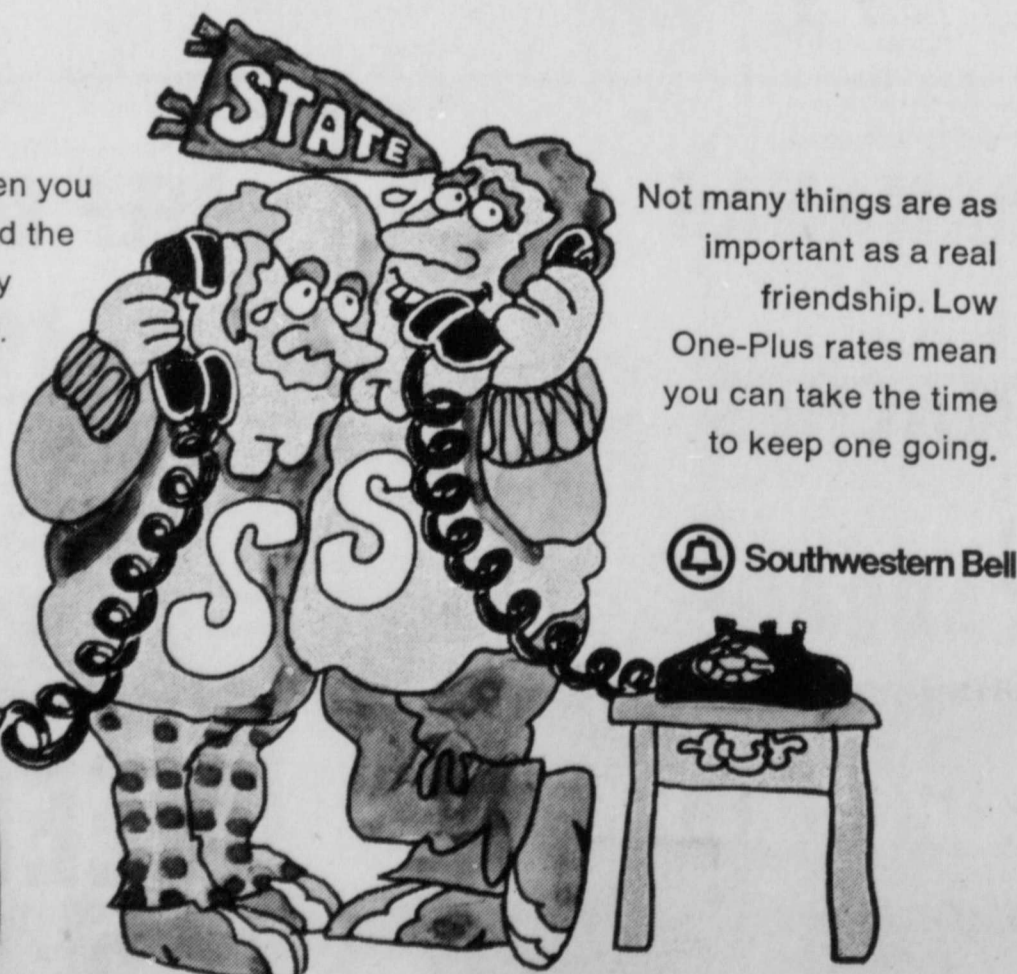 STATE
en you
d the
y
.
Not many things are as
important as a real
friendship. Low
One-Plus rates mean
you can take the time
to keep one going.
Southwestern Bell
S
S